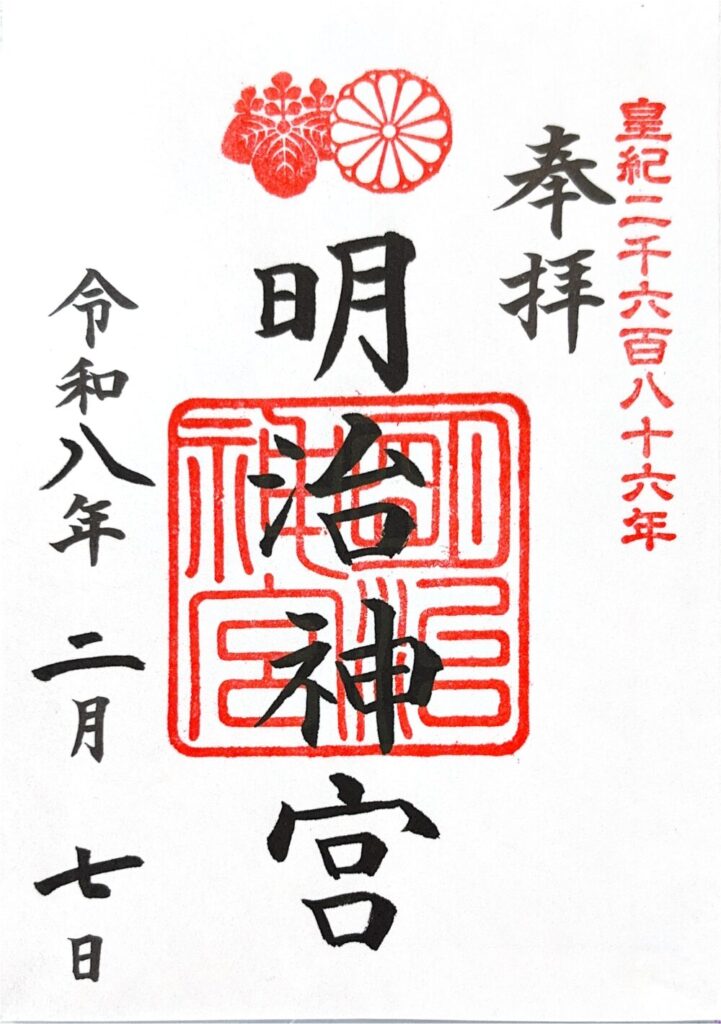 皇紀二千六百八十六年
奉拝
明治神宮
明治神宮
令和八年 二月 七日